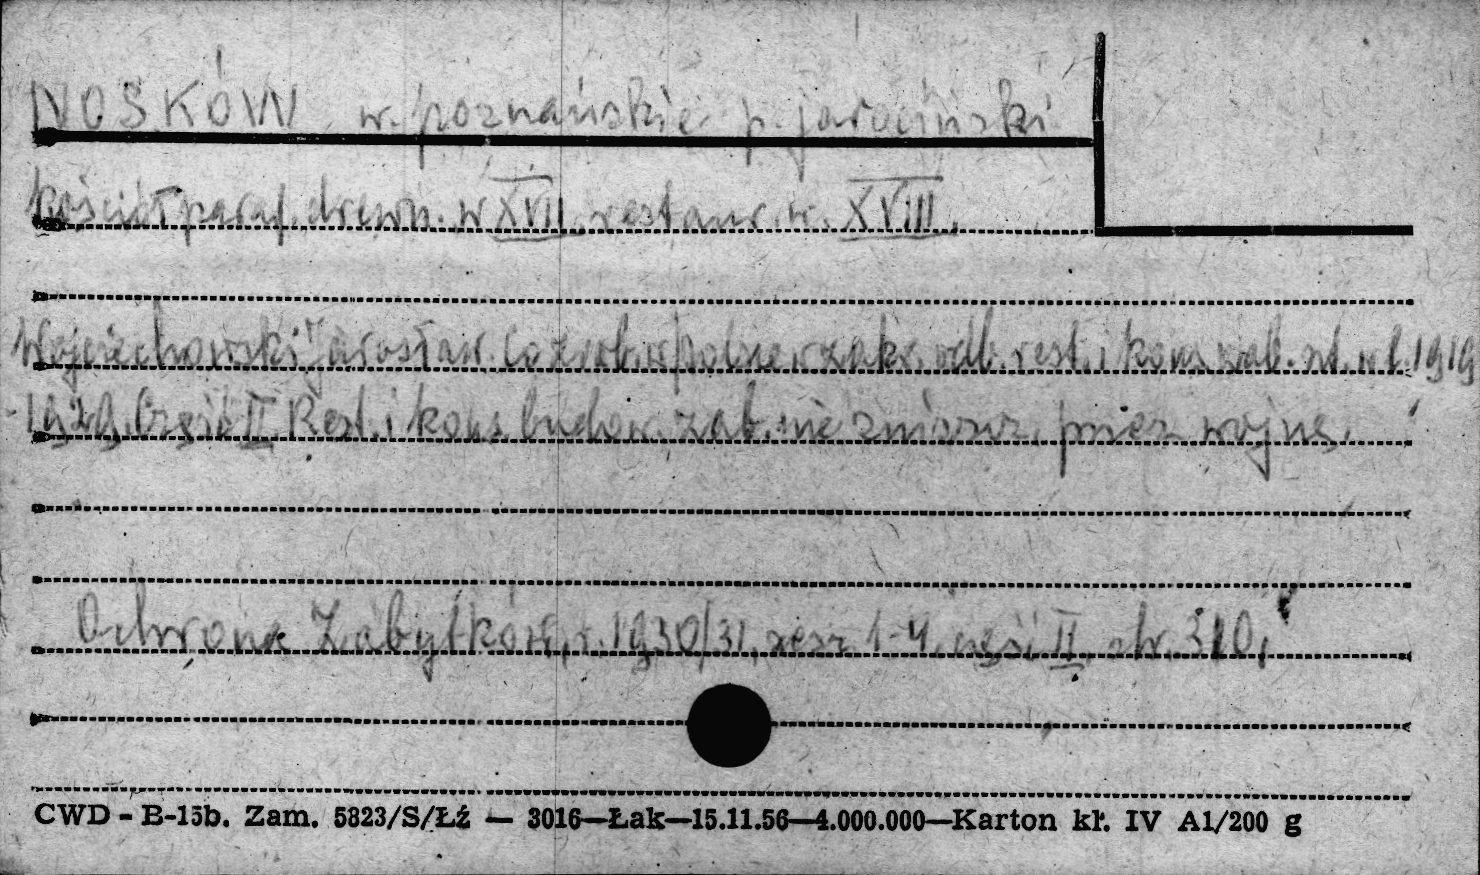 NOSKÓW w. poznańskie p. jarociński
kościół paraf. drewn. w XVII, restaur. w. XVIII.
Wojciechowski Jarosław. Co zrob. w Polsce w zakr. odb. rest. i kons. zab. szt. w l. 1919
-1929. Część II Rest. i kons. budow. zab. nie zniszcz. przez wojnę.
Ochrona Zabytków, r. 1930/31, zesz. 1-4, część II, str. 310,
CWD - B-15b. Zam. 5823/S/Łź — 3016—Łak—15.11.56—4.000.000—Karton kł. IV A1/200 g